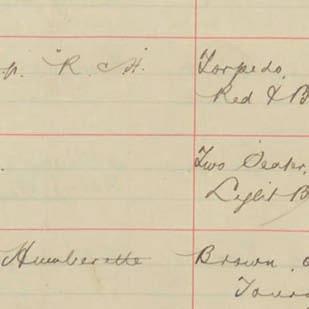 .p. "R. C. H." Torpedo.
Red & B
Two Seater.
Light B
Humberette Brown
Tour